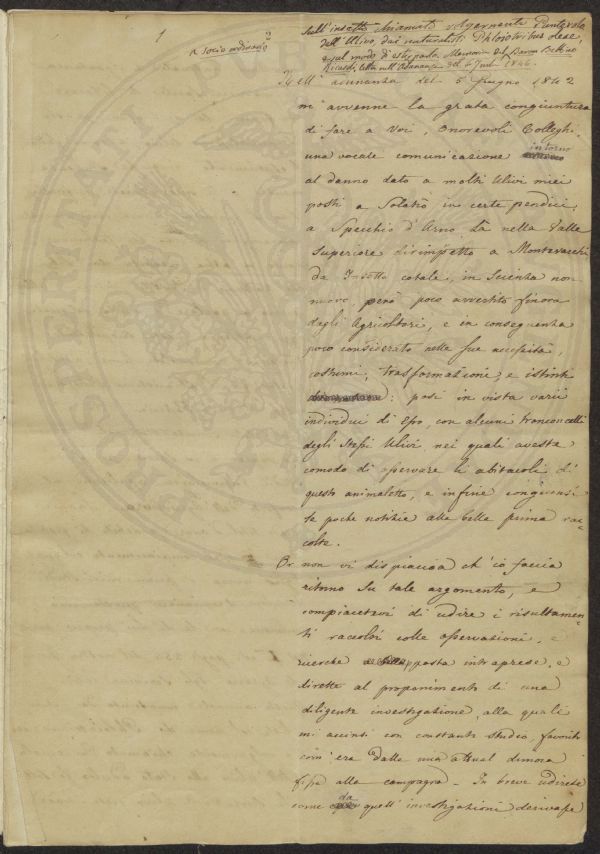 1
2
Socio ordinario
Sull'insetto chiamato volgarmente Punteruolo
dell'Ulivo, dai naturalisti Phloiotribus oleae,
e sul modo di estirparlo. Memoria del Baron
Ricasoli, letta nell'Adunanza del 1846.
Nell'adunanza del 5 Giugno 1842
m'avvenne la grata congiuntura
di fare a Voi, Onorevoli Colleghi,
una vocale comunicazione intorno
al danno dato a molti Ulivi miei
posti a Solatio in certe pendici
a Specchio d'Arno, Là nella Valle
Superiore dirimpetto a Montevarchi
da Insetto cotale, in Scienza non
nuovo, però poco avvertito finora
dagli Agricoltori, e in conseguenza
poco considerato nelle sue necessità,
costumi, trasformazioni, e istinti
: posi in vista varii
individui di Esso, con alcuni tronconcelli
degli Stessi Ulivi, nei quali aveste
comodo di osservare le abitacoli di
questo animaletto, e infine congiunsi
le poche notizie alle belle prima rac-
colte.
Or non vi dispiaccia ch'io faccia
ritorno su tale argomento, e
compiacetevi di udire i risultamen-
ti raccolti colle osservazioni, e
ricerche apposta intraprese, e
dirette al proponimento di una
diligente investigazione, alla quale
mi accinsi con constante studio, favorito
com'era dalla mia attual dimora
fissa alla campagna. - In breve udirete
come da quell'investigazioni derivasse